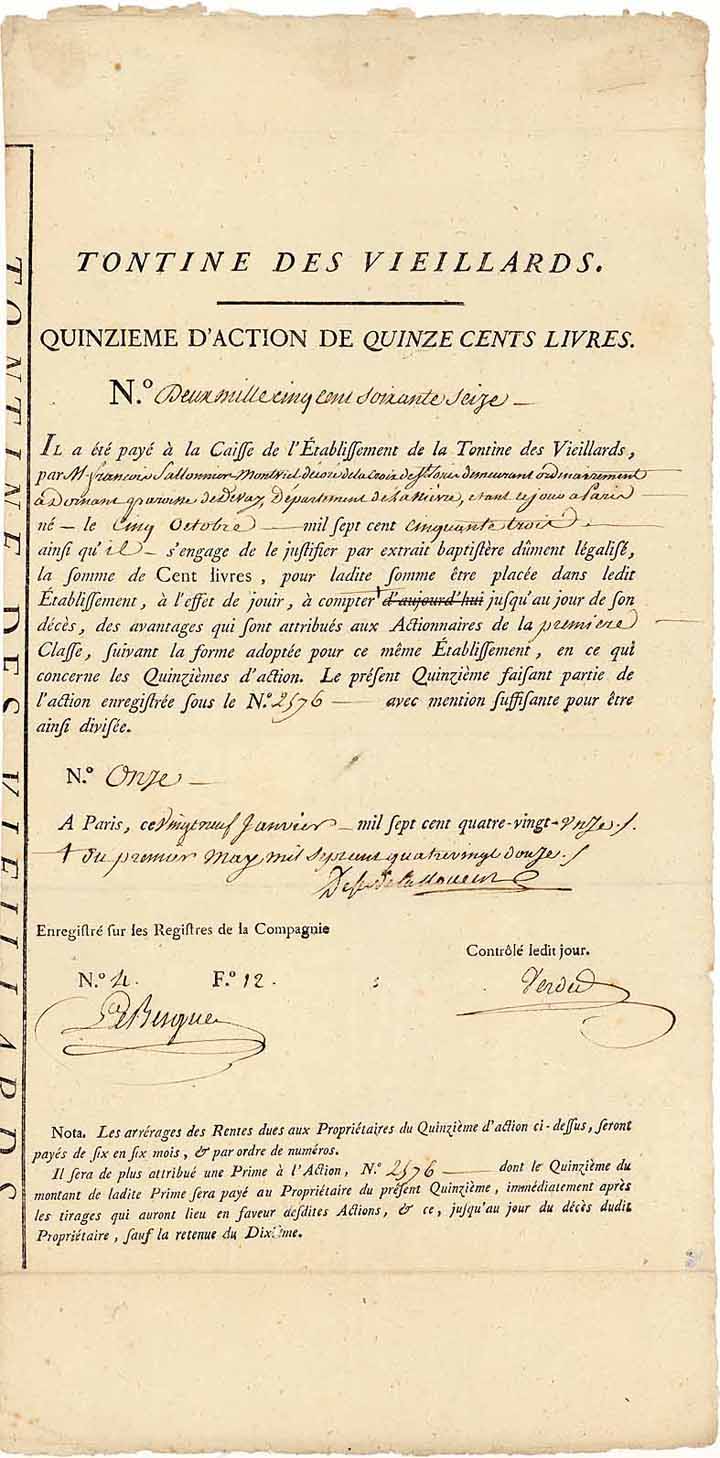 TONTINE DES VIEILLARDS
TONTINE DES VIEILLARDS.
QUINZIEME D'ACTION DE QUINZE CENTS LIVRES.
N.o Deux mille cinq cent soixante seize —
IL a été payé à la Caiſſe de l'Établiſſement de la Tontine des Vieillards,
par Mr francois Sallonnier Montviel décoré de la Croix de St Louis demeurant ordinairement
à Dornant paroisse de Devay, Département de la Nièvre, etant ce jour à Paris
né — le Cinq Octobre — mil ſept cent Cinquante trois
ainſi qu'il — s'engage de le juſtifier par extrait baptiſtère dûment légaliſé,
la ſomme de Cent livres, pour ladite ſomme être placée dans ledit
Établiſſement, à l'effet de jouir, à compter d'aujourd'hui juſqu'au jour de ſon
décès, des avantages qui ſont attribués aux Actionnaires de la premiere
Claſſe, ſuivant la forme adoptée pour ce même Établiſſement, en ce qui
concerne les Quinzièmes d'action. Le préſent Quinzième faiſant partie de
l'action enregiſtrée ſous le N.o 2576 — avec mention ſuffiſante pour être
ainſi diviſée.
N.o Onze —
A Paris, ce Vingt neuf Janvier — mil ſept cent quatre-vingt-Unze ./.
† du premier May mil Sept cent quatre vingt douze ./
Enregiſtré ſur les Regiſtres de la Compagnie
Contrôlé ledit jour.
N.o 4. F.o 12.
Verdié
DeBesque
Nota. Les arrérages des Rentes dues aux Propriétaires du Quinzième d'action ci-deſſus, ſeront
payés de ſix en ſix mois, & par ordre de numéros.
Il ſera de plus attribué une Prime à l'Action, N.o 2576 — dont le Quinzième du
montant de ladite Prime ſera payé au Propriétaire du préſent Quinzième, immédiatement après
les tirages qui auront lieu en faveur deſdites Actions, & ce, juſqu'au jour du décès dudit
Propriétaire, ſauf la retenue du Dixième.